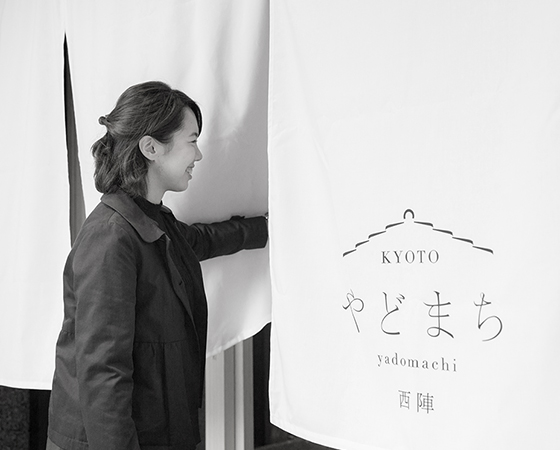 KYOTO
やどまち
yadomachi
西陣